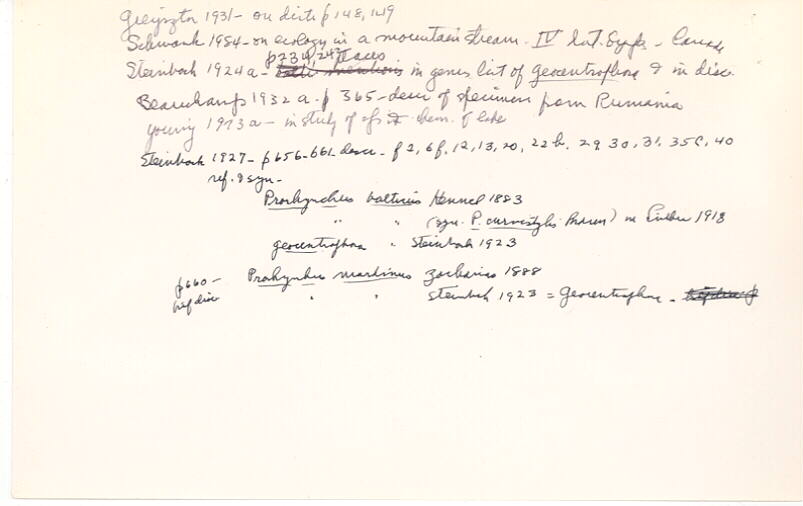 Gieysztor 1931- on distr p 148, 149
Schwank 1984- on ecology in a mountain stream - IV Int. Symp. - Canada
p 234, 243 places
Steinböck 1924a - in genus list of Geocentrophora & in disc.
Beauchamp 1932 a - p 365 - descr of specimen from Rumania
Young 1973a - in study of chem. of lake
Steinböck 1927 - p 656-661 descr - f 2, 6f. 12, 13, 20, 22b. 29 30, 31, 35c, 40
ref. & syn -
Prorhynchus balticus Kennel 1883
" " (syn. P. curvistylis Braun) in 1913
geocentrophora " Steinböck 1923
p 660 - Prorhynchus maximus Zacharias 1888
ref disc " " Steinböck 1923 = Geocentrophora -